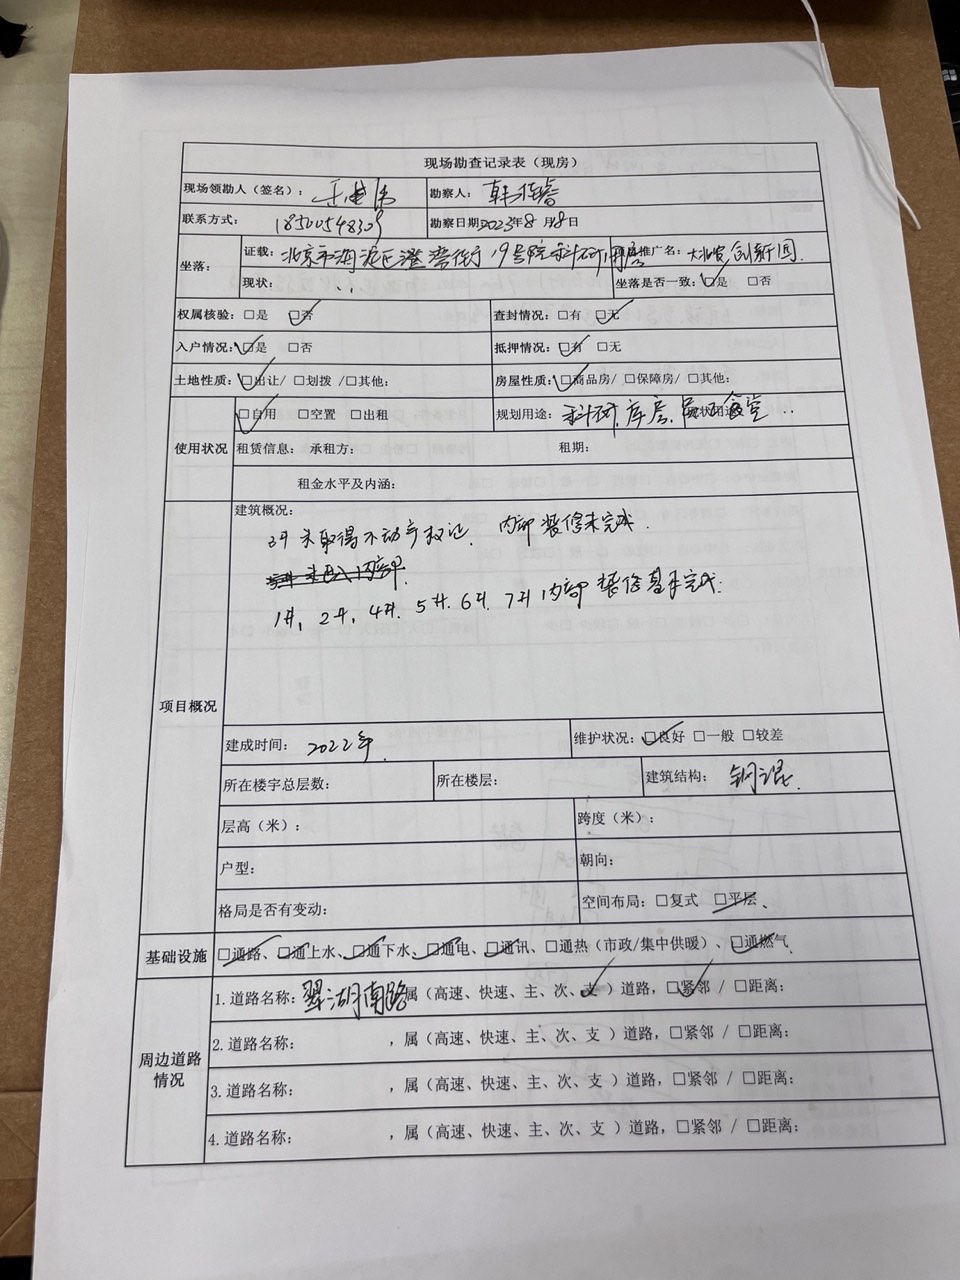 现场勘查记录表（现房）
现场领勘人（签名）： 勘察人：
联系方式： 18500548309 勘察日期2023年8月18日
坐落： 证载：北京市海淀区澄湾街19号院科研用房 推广名：大北农创新园
现状： 、、 坐落是否一致：☑是 □否
权属核验：□是 ☑否 查封情况：□有 ☑无
入户情况：☑是 □否 抵押情况：☑有 □无
土地性质：☑出让/ □划拨 /□其他： 房屋性质：☑商品房/ □保障房/ □其他：
使用状况 ☑自用 □空置 □出租 规划用途：科研,库房, 食堂
租赁信息： 承租方： 租期：
租金水平及内涵：
项目概况 建筑概况：
3# 未取得不动产权证、内部装修未完成.
1#, 2#, 4#. 5#. 6#. 7# 内部装修基本完成.
建成时间： 2022年. 维护状况：☑良好 □一般 □较差
所在楼宇总层数： 所在楼层： 建筑结构： 钢混.
层高（米）： 跨度（米）：
户型： 朝向：
格局是否有变动： 空间布局：□复式 ☑平层、
基础设施 ☑通路、☑通上水、☑通下水、☑通电、☑通讯、□通热（市政/集中供暖）、☑通燃气
周边道路情况 1.道路名称：翠湖南路 属（高速、快速、主、次、支）道路，☑紧邻 / □距离：
2.道路名称： ，属（高速、快速、主、次、支）道路，□紧邻 / □距离：
3.道路名称： ，属（高速、快速、主、次、支）道路，□紧邻 / □距离：
4.道路名称： ，属（高速、快速、主、次、支）道路，□紧邻 / □距离：